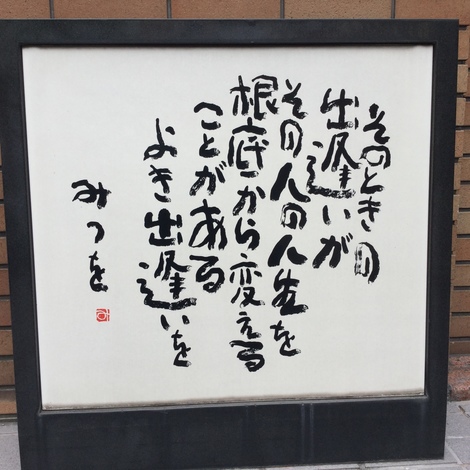 そのときの
出逢いが
その人の人生を
根底から変える
ことがある
よき出逢いを
みつを